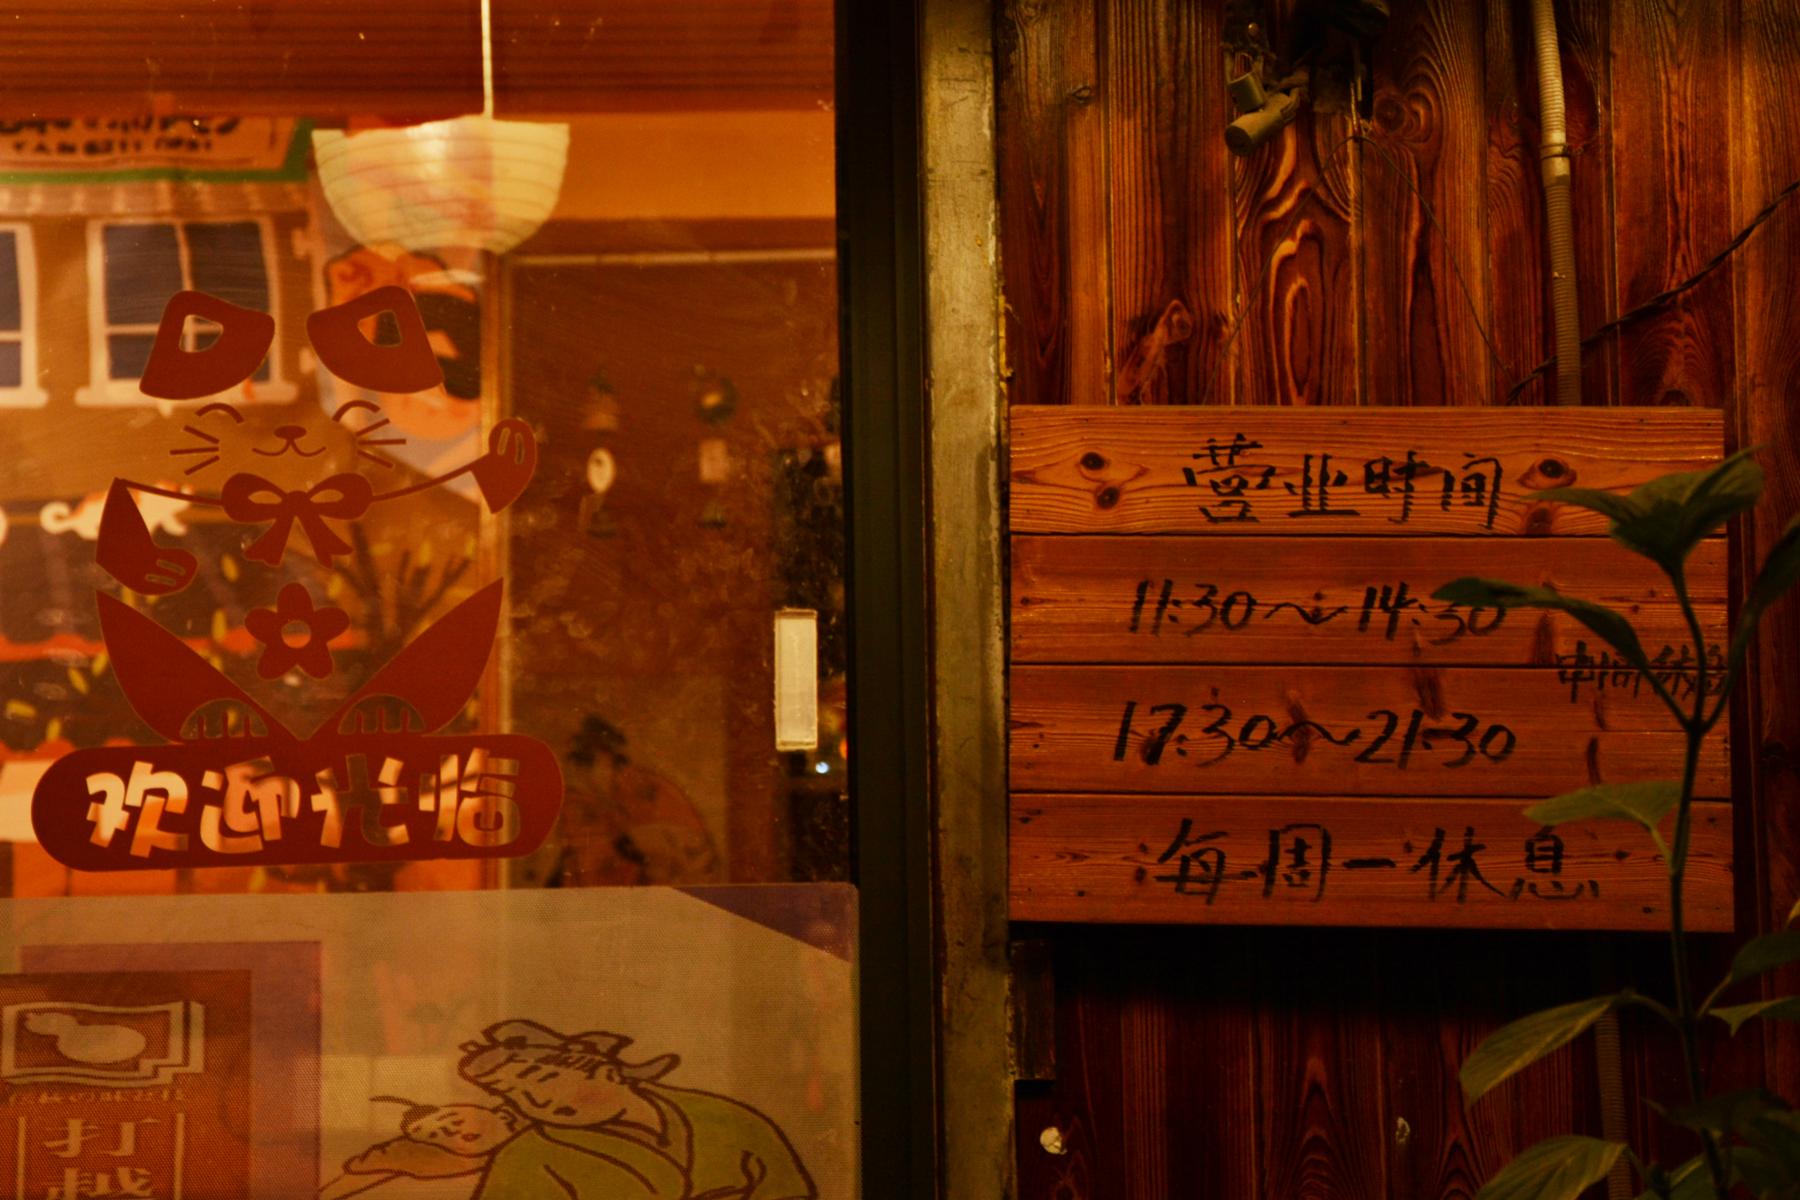 欢迎光临
打
越
营业时间
11:30～14:30
中间休息
17:30～21:30
每周一休息